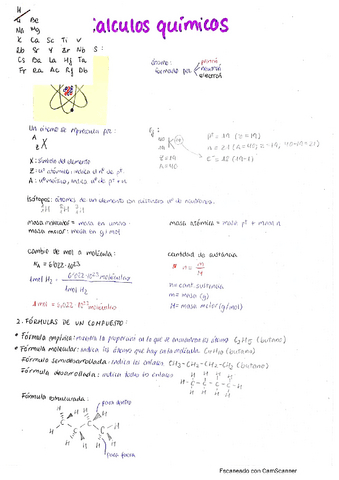 H
Li Be
Na Mg
K Ca Sc Ti V
Rb Sr Y Zr Nb S:
Cs Ba La Hf Ta
Fr Ra Ac Rf Db
Cálculos químicos
Átomo:
formado por
protón
neutrón
electrón
Un átomo se representa por:
A
X
Z
X: símbolo del elemento
Z: nº atómico, indica el nº de p⁺.
A: nº másico, indica nº de p⁺ + n
Ej:
K
Z=19
A=40
p⁺ = 19 (Z=19)
n = 21 (A=40; Z=19, 40-19=21)
e⁻ = 18 (19-1)
Isótopos: átomos de un elemento con distinto nº de neutrones.
masa molecular = masa en umas
masa molar = masa en g/mol
masa atómica = masa p⁺ + masa n
cambio de mol a molécula:
NA = 6'022·10²³
1mol H₂ · 6'022·10²³ moléculas
1mol H₂
1mol = 6,022·10²³ moléculas
cantidad de sustancia
* n = m
M
n = cant. sustancia
m = masa (g)
M = masa molar (g/mol)
2. FÓRMULAS DE UN COMPUESTO:
* Fórmula empírica: muestra la proporción en la que se encuentran los átomos C₂H₅ (butano)
* Fórmula molecular: indica los átomos que hay en la molécula C₄H₁₀ (butano)
Fórmula semidesarrollada: indica los enlaces CH₃-CH₂-CH₂-CH₃ (butano)
Fórmula desarrollada: indica todos los enlaces
H H H H
H-C-C-C-C-H
H H H H
Fórmula estructurada:
para dentro
para fuera
Escaneado con CamScanner